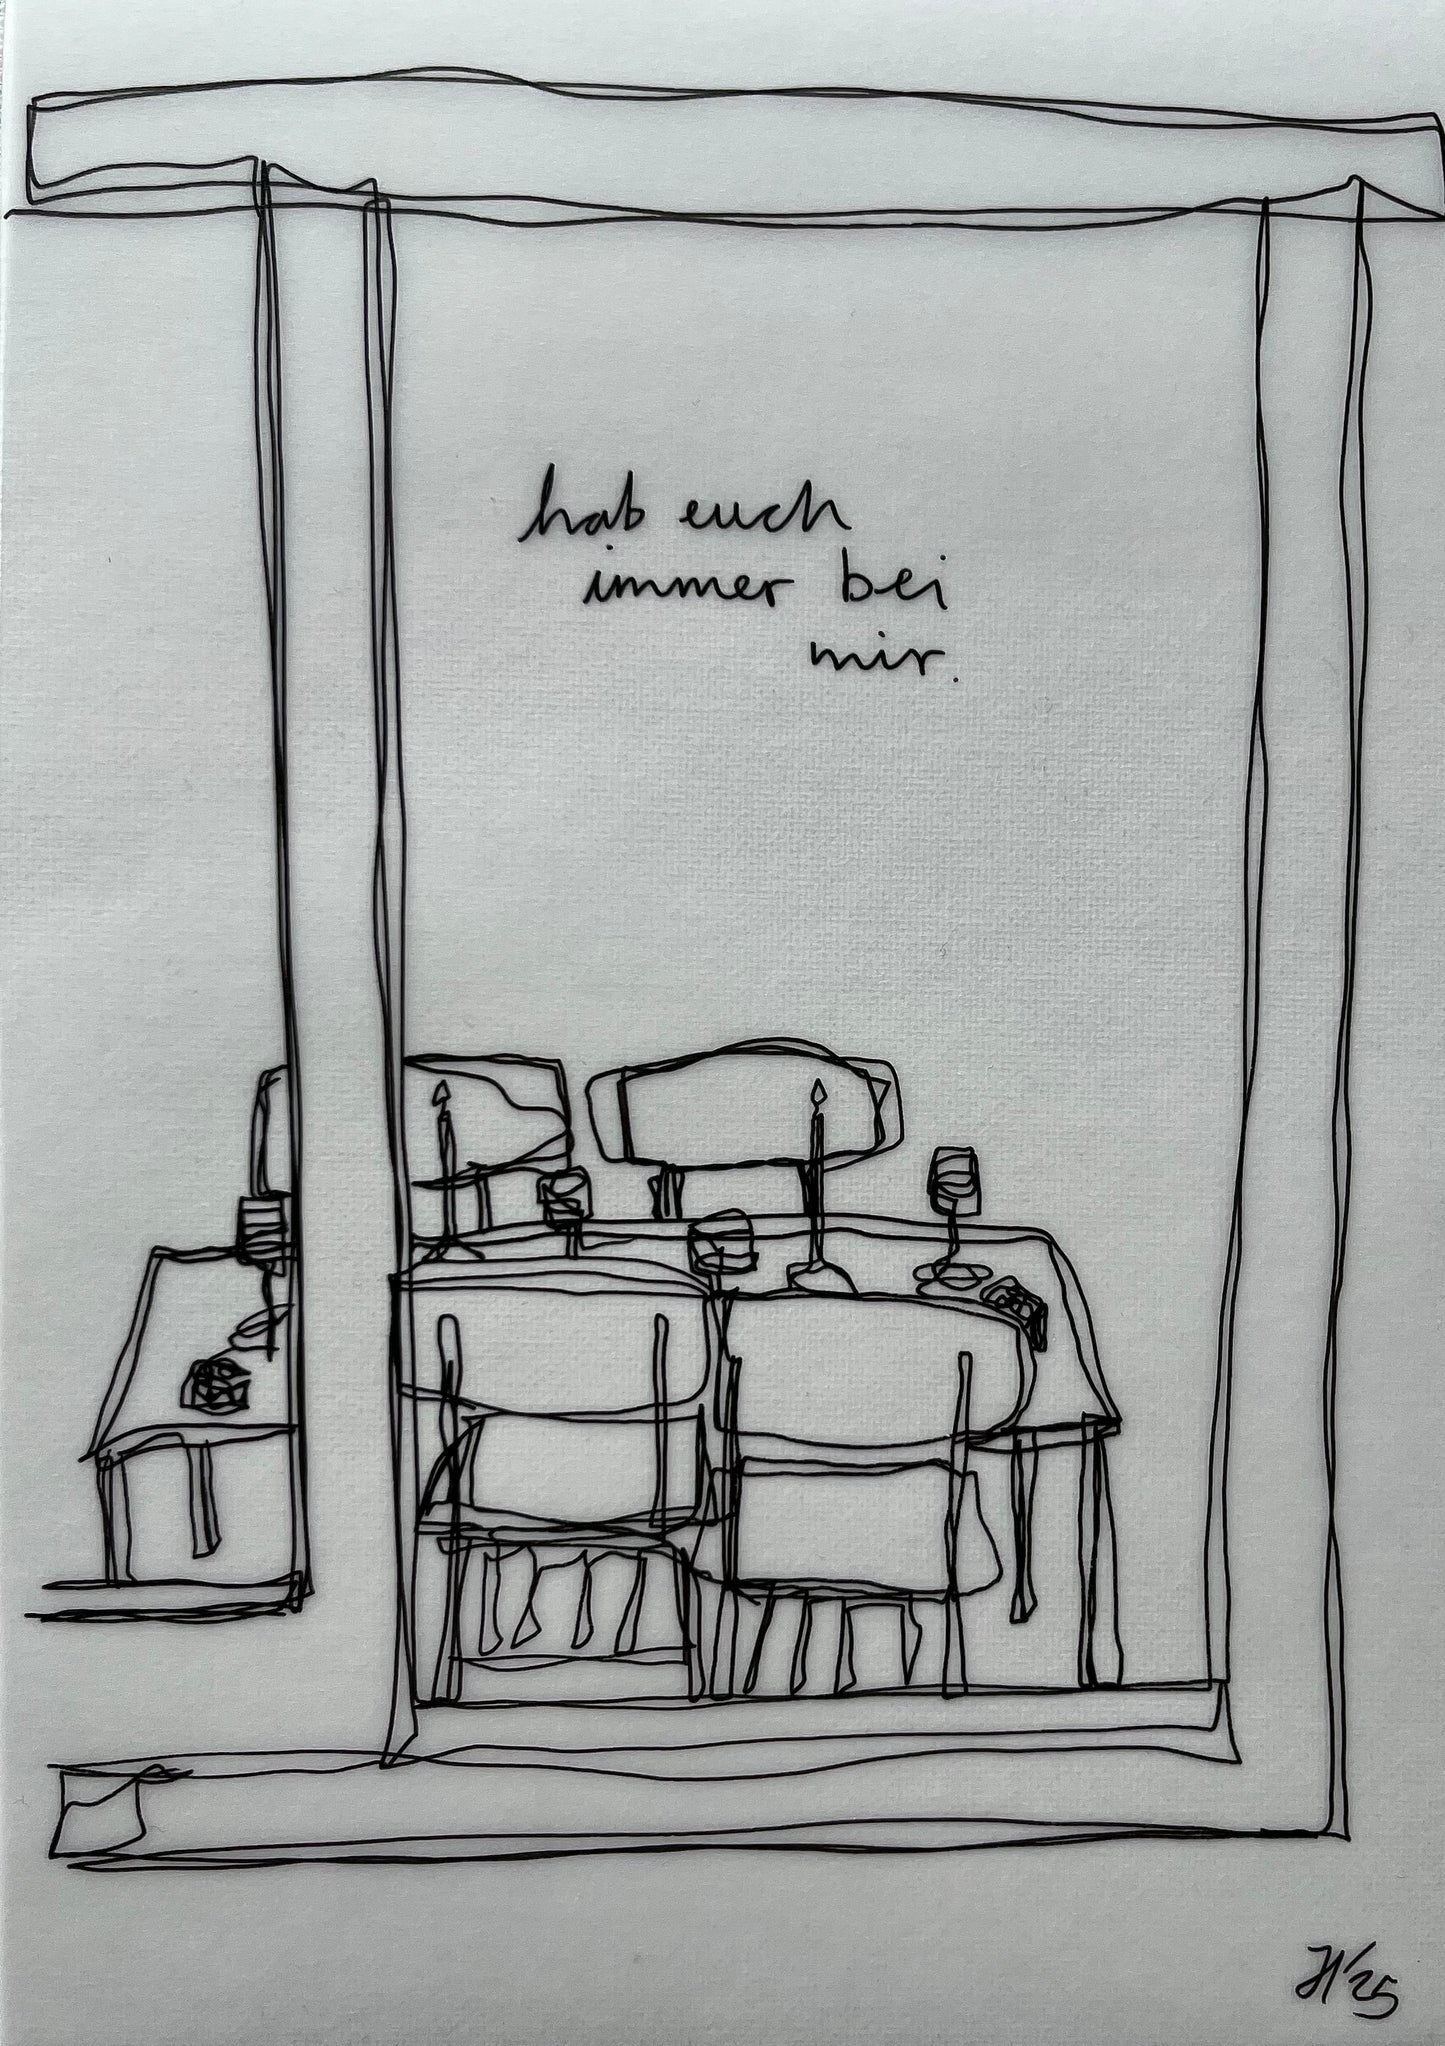 hab euch
immer bei
mir.
JH '25